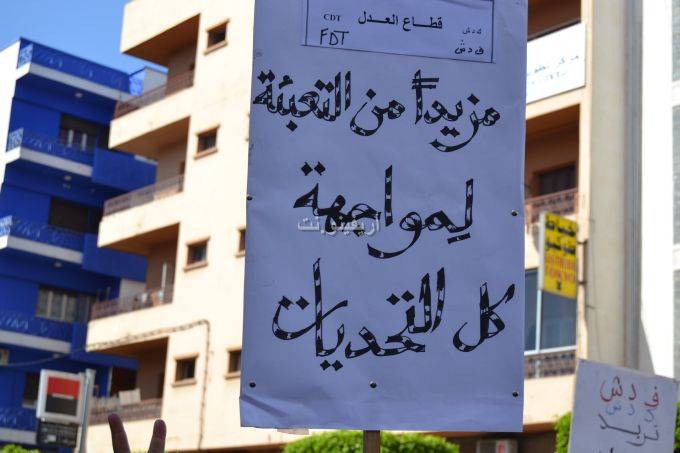 CDT
قطاع العدل
ك د ش
FDT
ف د ش
مزيداً من التعبئة
لمواجهة
أريفينو.نت
كل التحديات
ف د ش